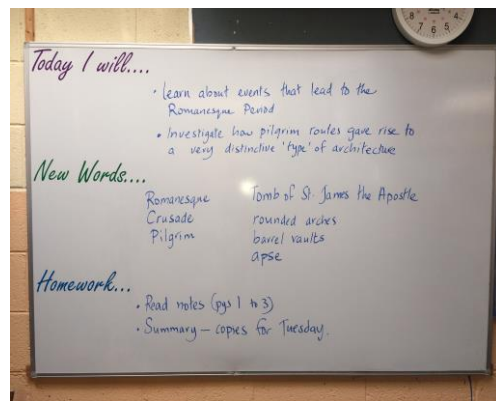 Today I will....
• Learn about events that lead to the
Romanesque Period
• Investigate how pilgrim routes gave rise to
a very distinctive 'type' of architecture
New Words....
Romanesque
Crusade
Pilgrim
Tomb of St. James the Apostle
rounded arches
barrel vaults
apse
Homework...
• Read notes (pgs 1 to 3)
• Summary – copies for Tuesday.
8 7 6 5 4